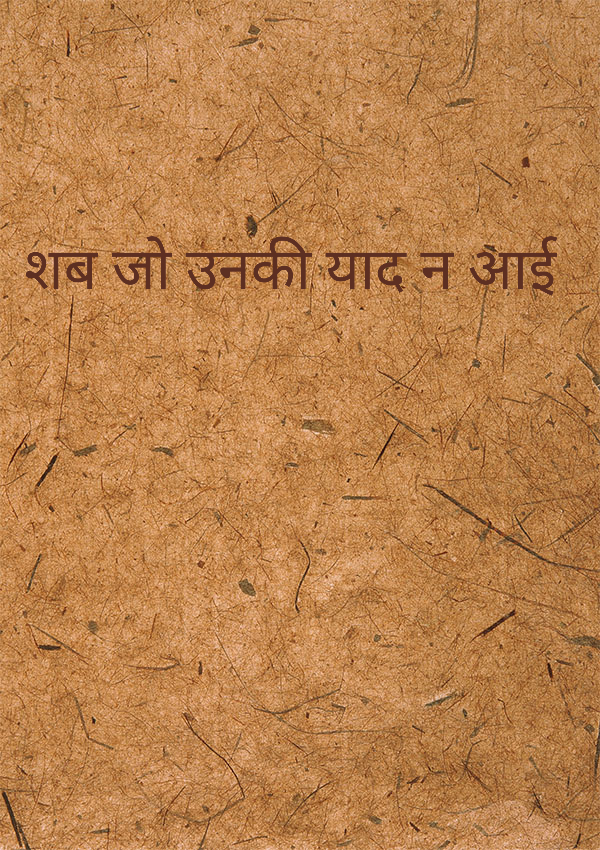 शब जो उनकी याद न आई